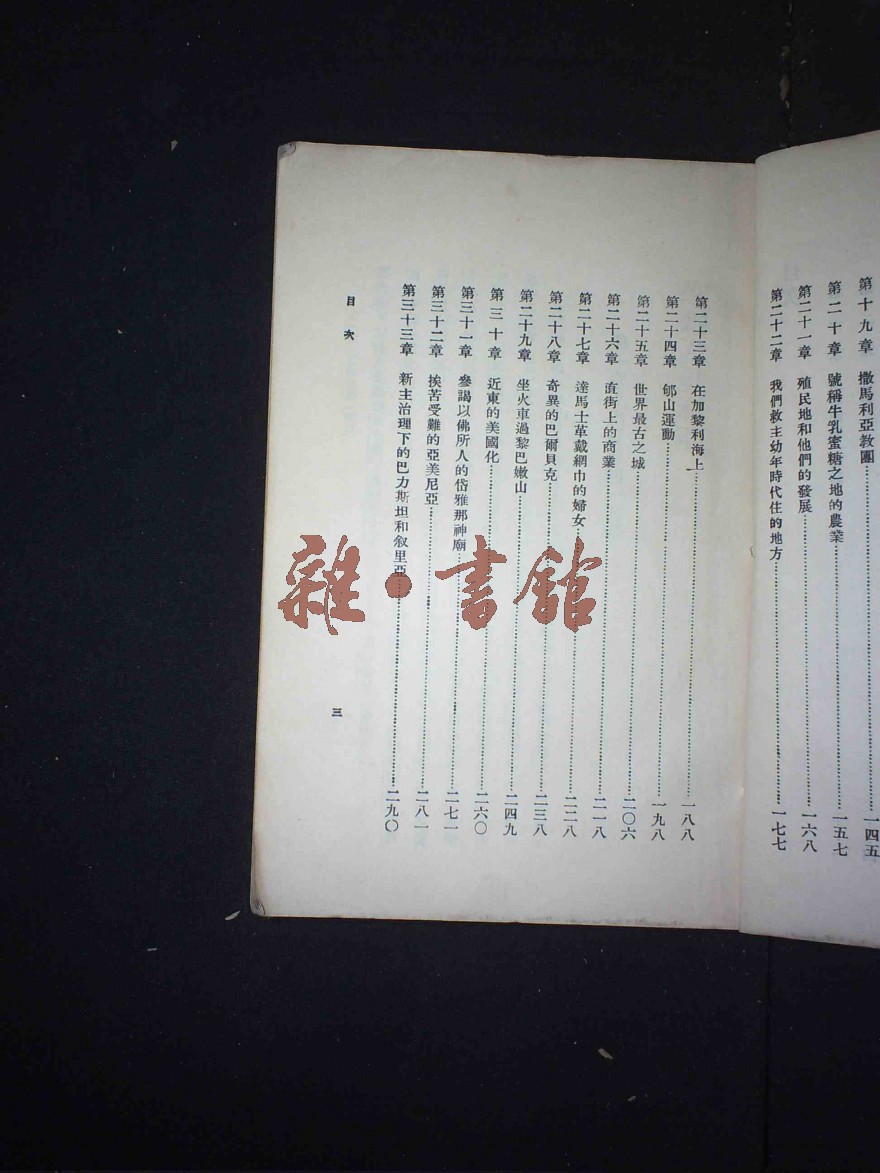 第十九章　撒馬利亞教團……一四五
第二十章　號稱牛乳蜜糖之地的農業……一五七
第二十一章　殖民地和他們的發展……一六八
第二十二章　我們救主幼年時代住的地方……一七七
第二十三章　在加黎利海上……一八八
第二十四章　郇山運動……一九八
第二十五章　世界最古之城……二〇六
第二十六章　直街上的商業……二一八
第二十七章　達馬士革戴網巾的婦女……二二八
第二十八章　奇異的巴爾貝克……二三八
第二十九章　坐火車過黎巴嫩山……二四九
第三十章　近東的美國化……二六〇
第三十一章　參謁以佛所人的岱雅那神廟……二七一
第三十二章　挨苦受難的亞美尼亞……二八一
第三十三章　新主治理下的巴力斯坦和敘里亞……二九〇
目次
三
雜·書館